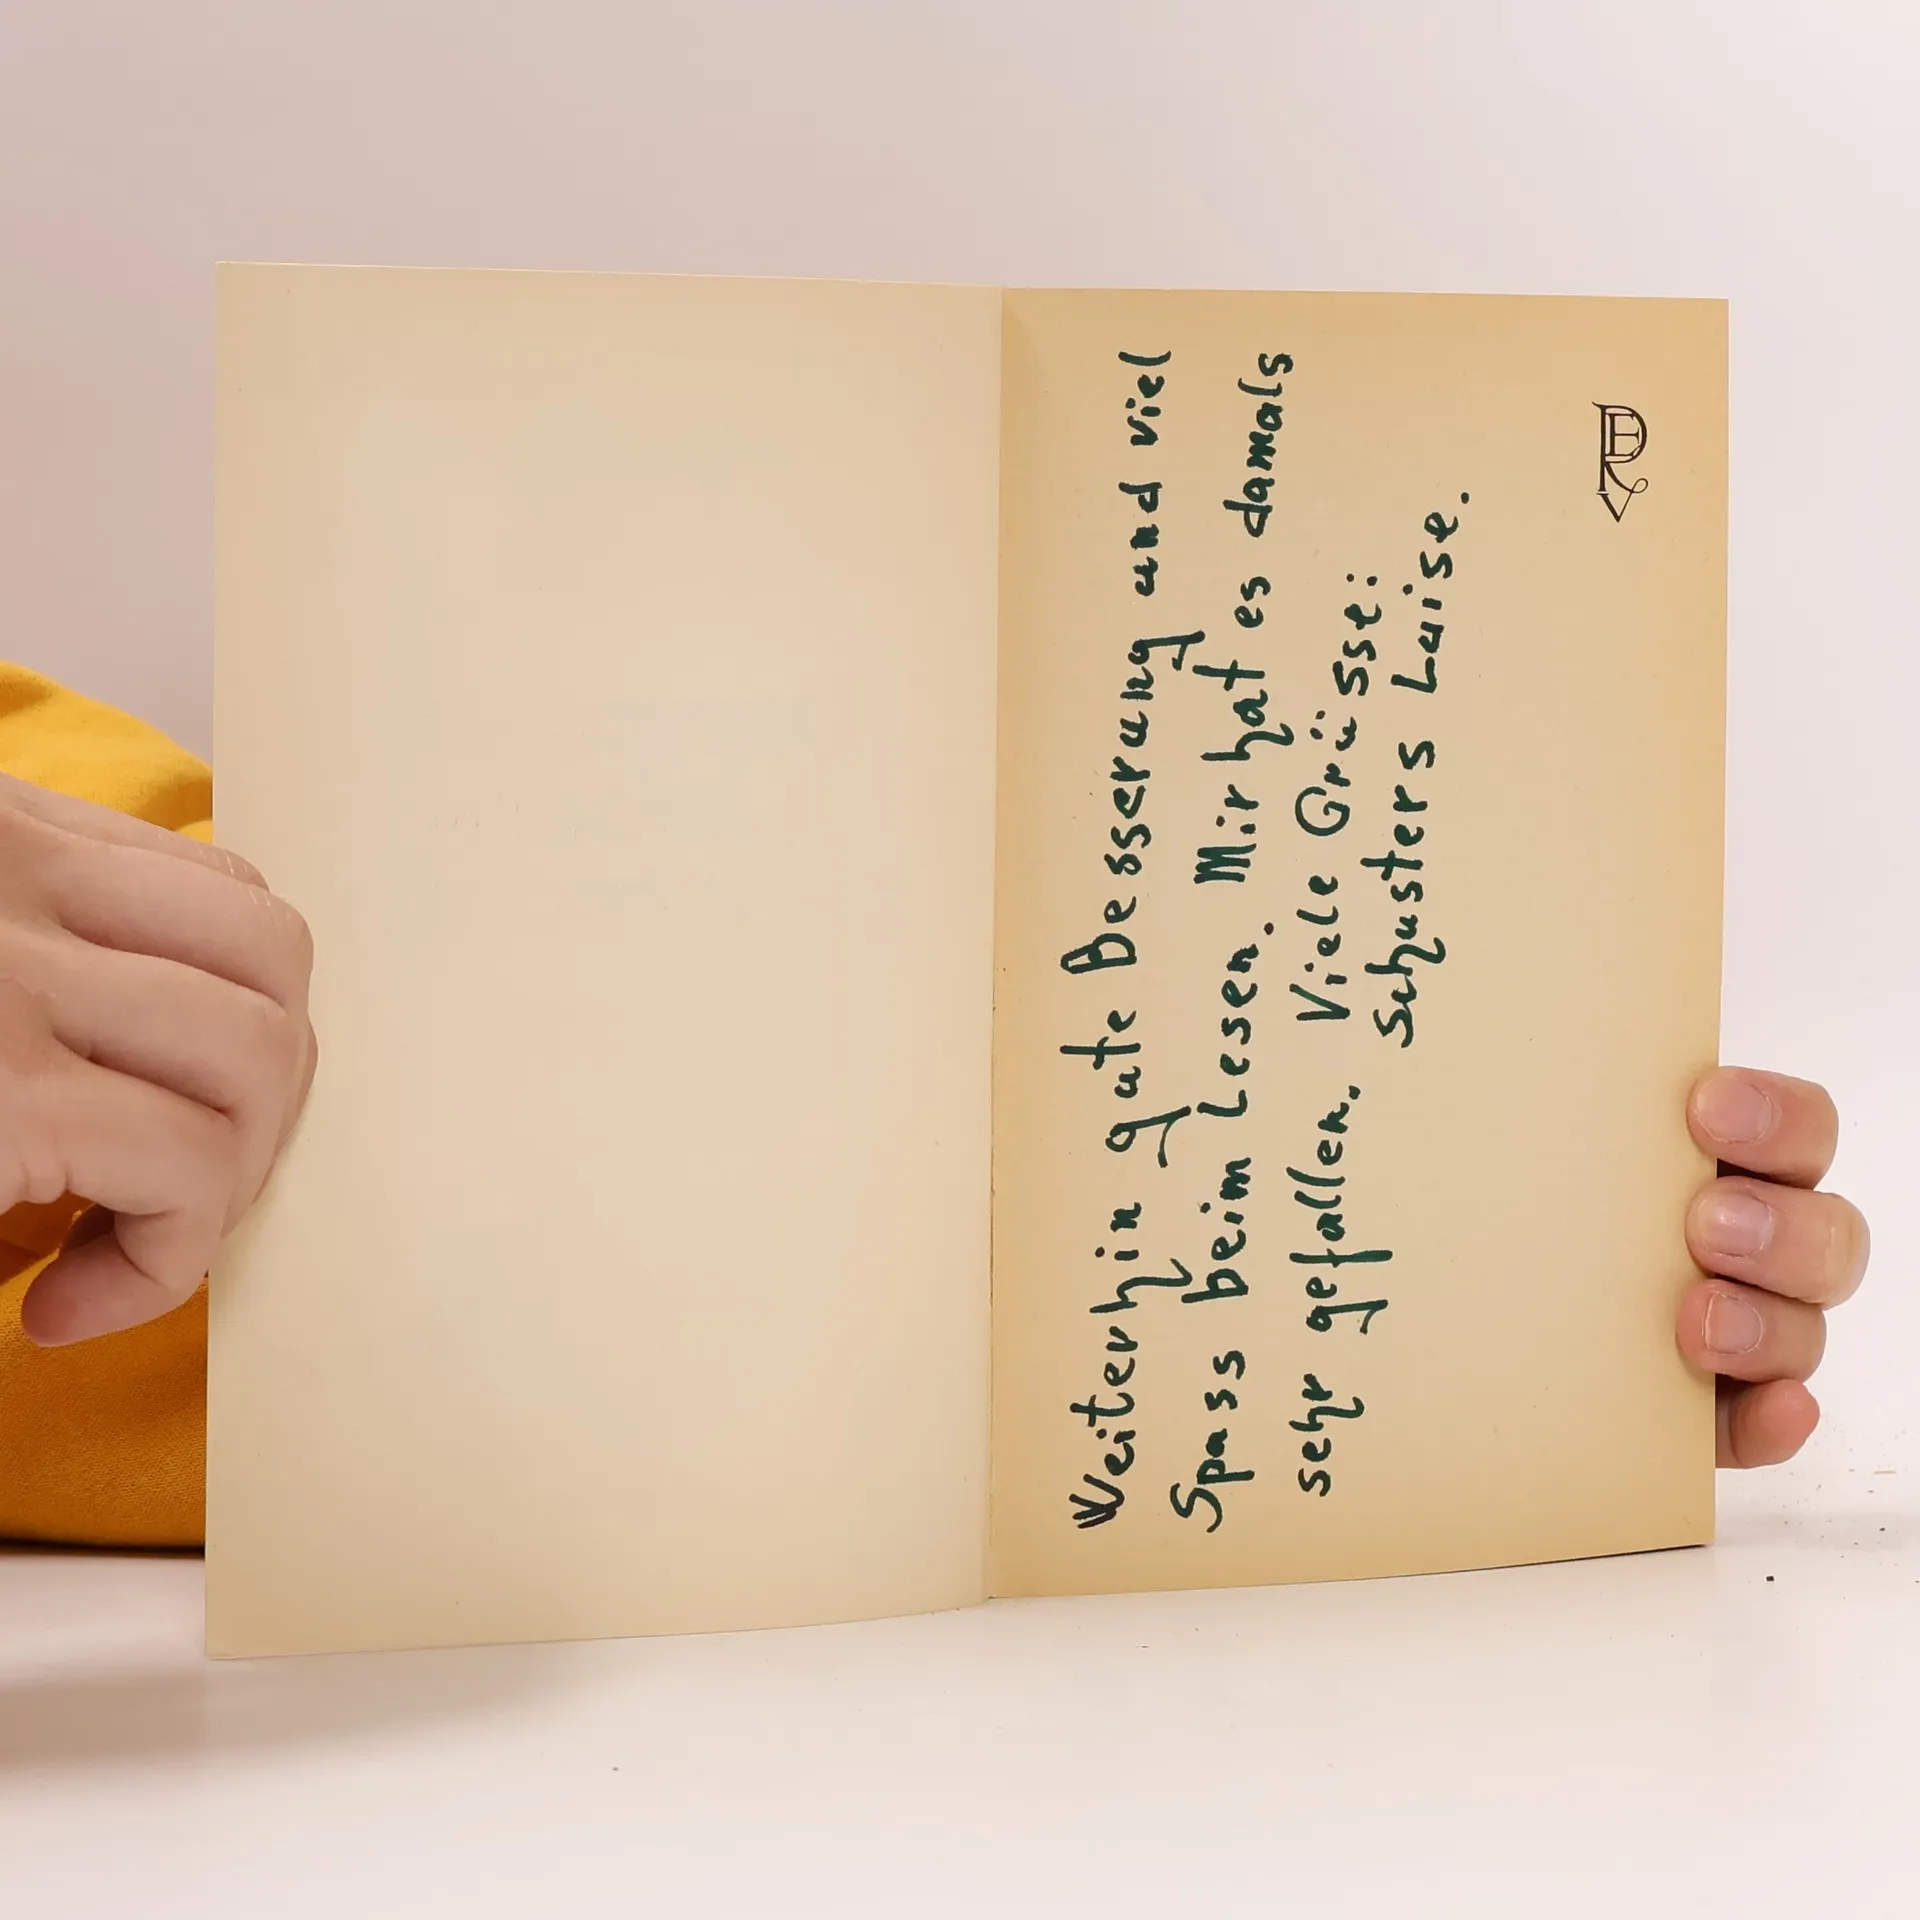 Weiterhin gute Besserung und viel
Spass beim Lesen. Mir hat es damals
sehr gefallen. Viele Grüsse:
Schusters Luise.